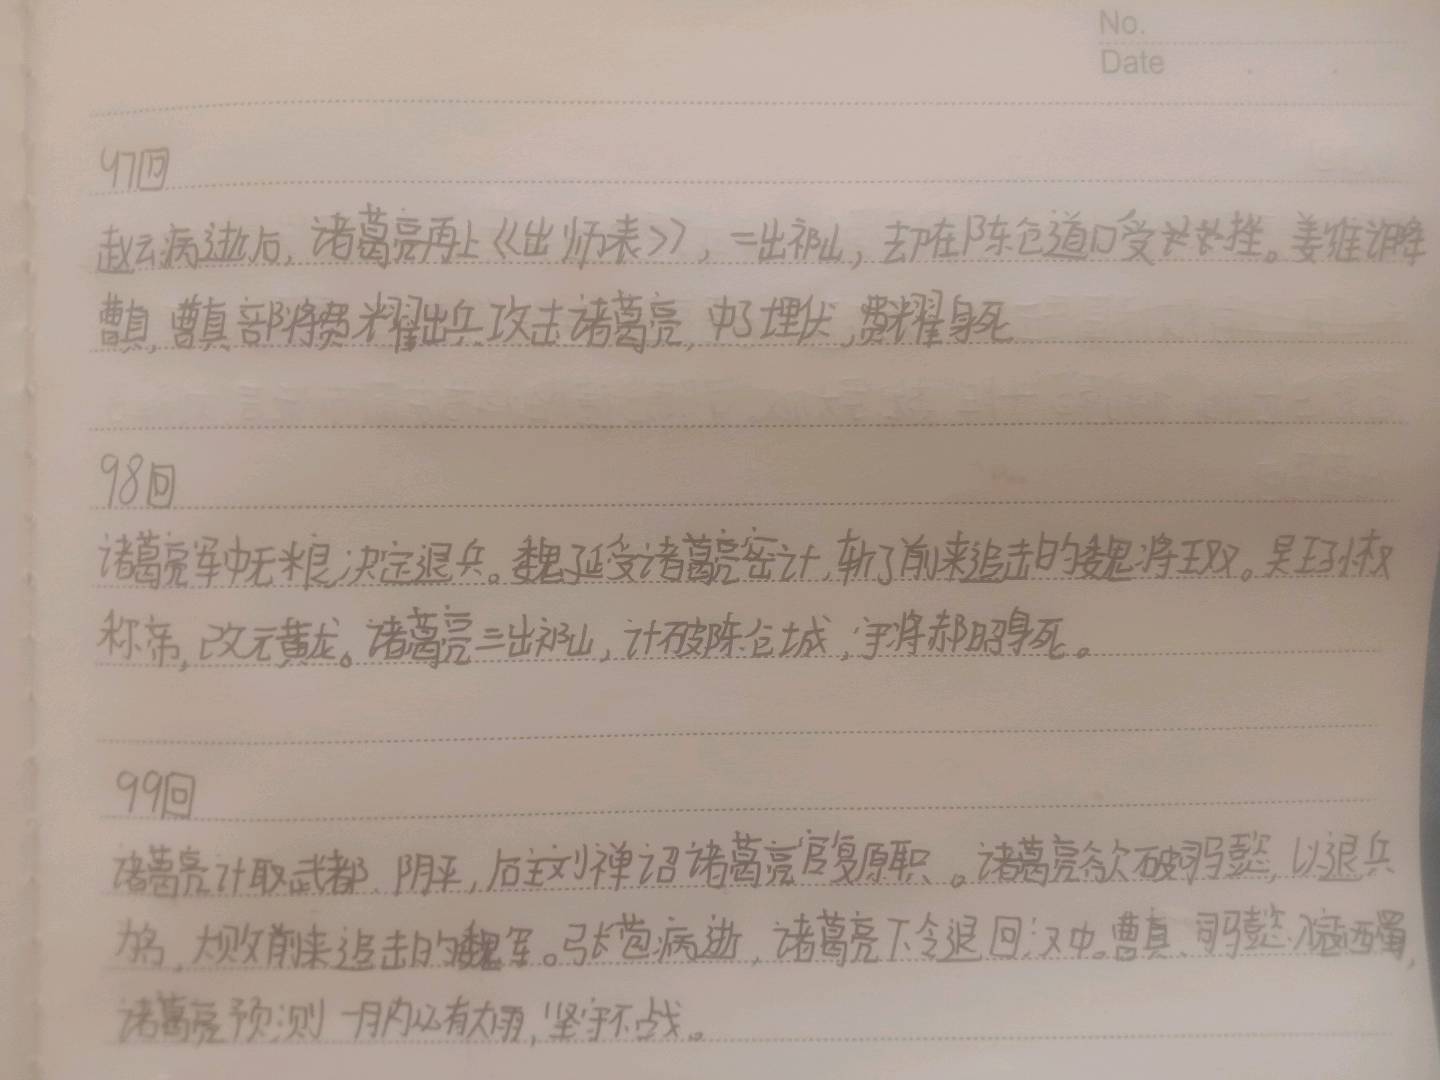 No.
Date
97回
赵云病逝后，诸葛亮再上《出师表》，二出祁山，却在陈仓道口受挫。姜维诈降
曹真，曹真部将费耀出兵攻击诸葛亮，中了埋伏，费耀身死
98回
诸葛亮军中无粮，决定退兵。魏延受诸葛亮密计，斩了前来追击的魏将王双。吴王孙权
称帝，改元黄龙。诸葛亮三出祁山，计破陈仓城，守将郝昭身死。
99回
诸葛亮计取武都、阴平，后主刘禅诏诸葛亮官复原职。诸葛亮欲破司马懿，以退兵
为名，大败前来追击的魏军。张苞病逝，诸葛亮下令退回汉中。曹真、司马懿入寇西蜀，
诸葛亮预测一月内必有大雨，坚守不战。